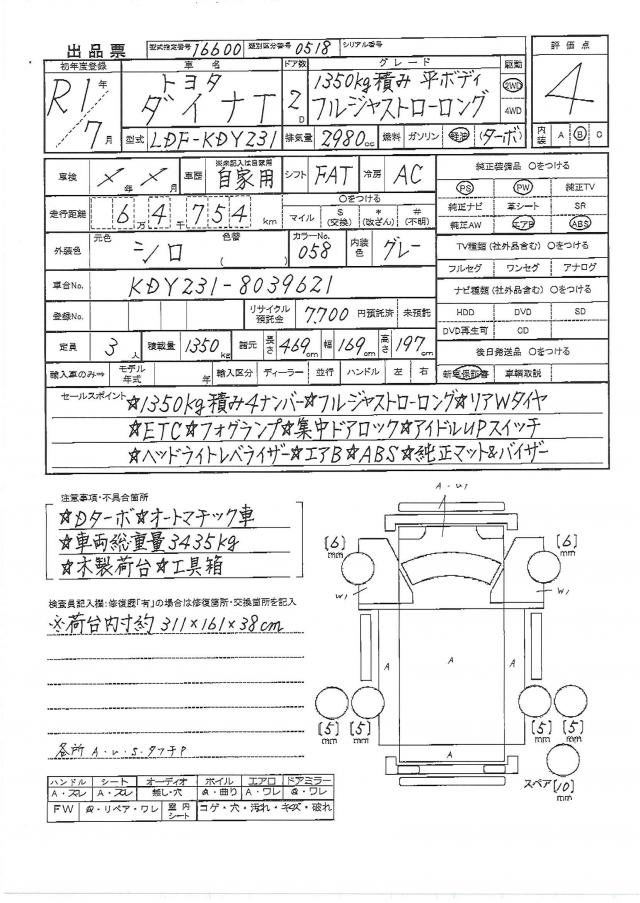 出品票 型式指定番号 16600 類別区分番号 0518 シリアル番号
初年度登録 車名 ドア数 グレード 駆動 評価点
R1年 トヨタ 1350kg積み 平ボディ 2WD 4
7月 ダイナT 2D フルジャストローロング 4WD
型式 LDF-KDY231 排気量 2980cc 燃料 ガソリン 軽油 (ターボ) 内装 A B C
車検 ×年×月 車歴 ※未記入は自家用 自家用 シフト FAT 冷房 AC
純正装備品 ○をつける
PS PW 純正TV
純正ナビ 革シート SR
純正AW エアB ABS
走行距離 6万4千754km ○をつける マイル $(交換) *(改ざん) #(不明)
外装色 元色 シロ 色替 ( ) カラーNo. 058 内装色 グレー
TV種類(社外品含む) ○をつける
フルセグ ワンセグ アナログ
車台No. KDY231-8039621
ナビ種類(社外品含む) ○をつける
登録No. リサイクル預託金 7,700円預託済 未預託
HDD DVD SD
DVD再生可 CD
定員 3人 積載量 1350kg 諸元 長さ 469cm 幅 169cm 高さ 197cm
後日発送品 ○をつける
輸入車のみ⇒ モデル年式 年 輸入区分 ディーラー 並行 ハンドル 左 右
新車保証書 車輌取説
セールスポイント ☆1350kg積み4ナンバー☆フルジャストローロング☆リアWタイヤ
☆ETC☆フォグランプ☆集中ドアロック☆アイドルUPスイッチ
☆ヘッドライトレベライザー☆エアB☆ABS☆純正マット&バイザー
注意事項・不具合箇所
☆Dターボ☆オートマチック車
☆車両総重量3435kg
☆木製荷台☆工具箱
検査員記入欄:修復歴「有」の場合は修復箇所・交換箇所を記入
※荷台内寸約311×161×38cm
各所 A・U・S・タッチP
A・U1
[6]mm [6]mm
W1 W1
A A A
[5]mm [5]mm [5]mm [5]mm
A
スペア [10]mm
ハンドル シート オーディオ ホイル エアロ ドアミラー
A・スレ A・スレ 無し・穴 A・曲り A・ワレ A・ワレ
FW A・リペア・ワレ 室内シート コゲ・穴・汚れ・キズ・破れ